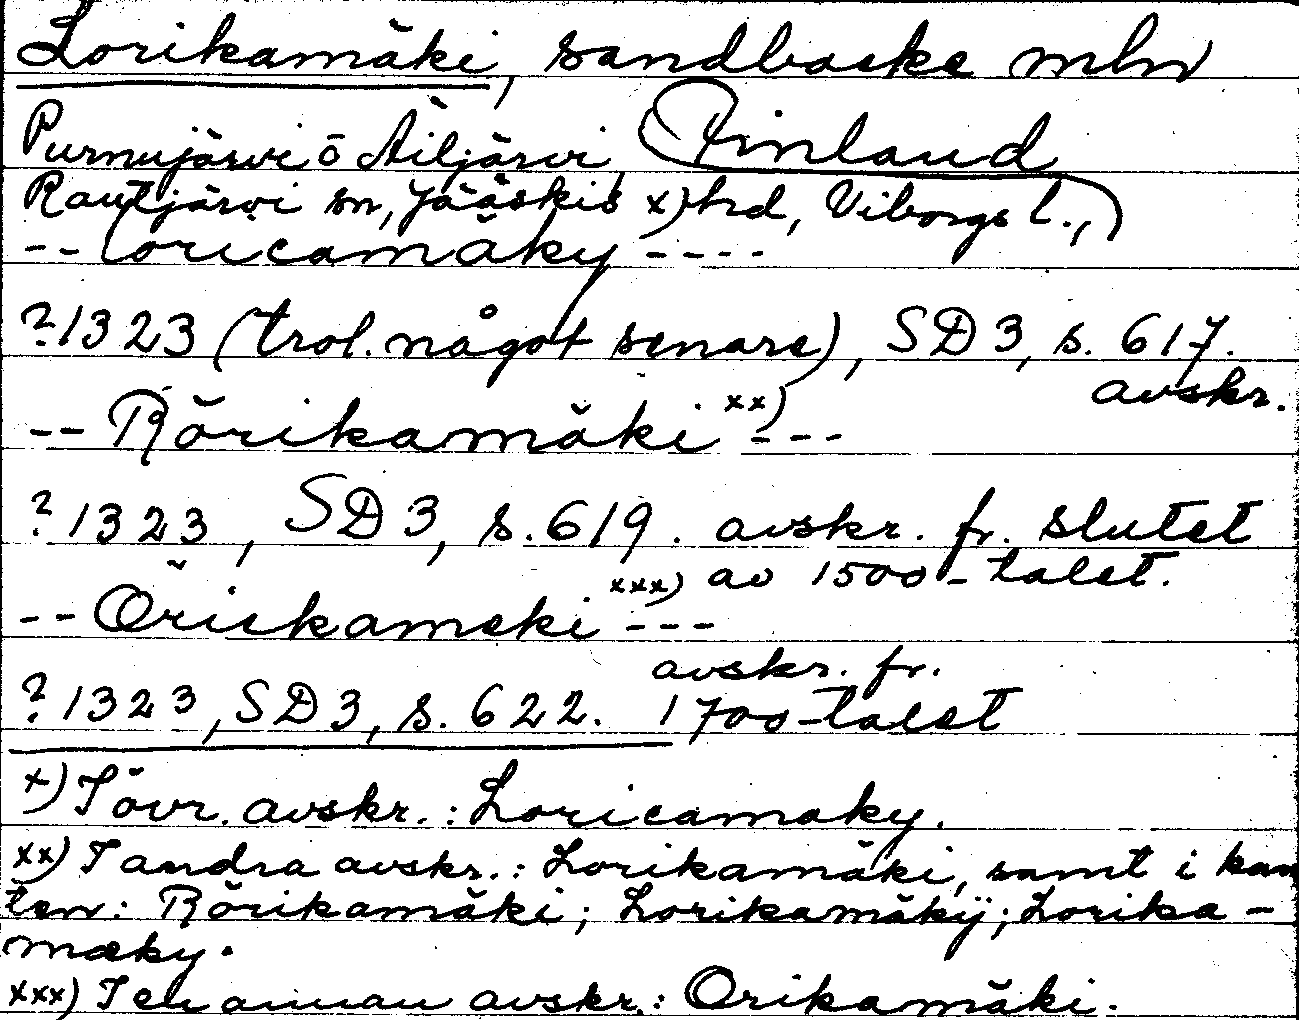 Lorikamäki, sandbacke mln
Purnujärvi o Äiljärvi, Finland
Rautjärvi sn, Jääskis x) hd, Viborgs l.,
-- loricamäky ----
?1323 (trol. något senare), SD 3, s. 617.
avskr.
-- Rörikamäki xx) ---
?1323, SD 3, s. 619. avskr. fr. slutet
av 1500-talet.
-- Örickameki xxx) ---
avskr. fr.
?1323, SD 3, s. 622. 1700-talet
x) I övr. avskr.: Loricamaky.
xx) I andra avskr.: Lorikamäki, samt i kan
ten: Rörikamäki; Lorikamäkij; Lorika-
mæky.
xxx) I en annan avskr.: Orikamäki.